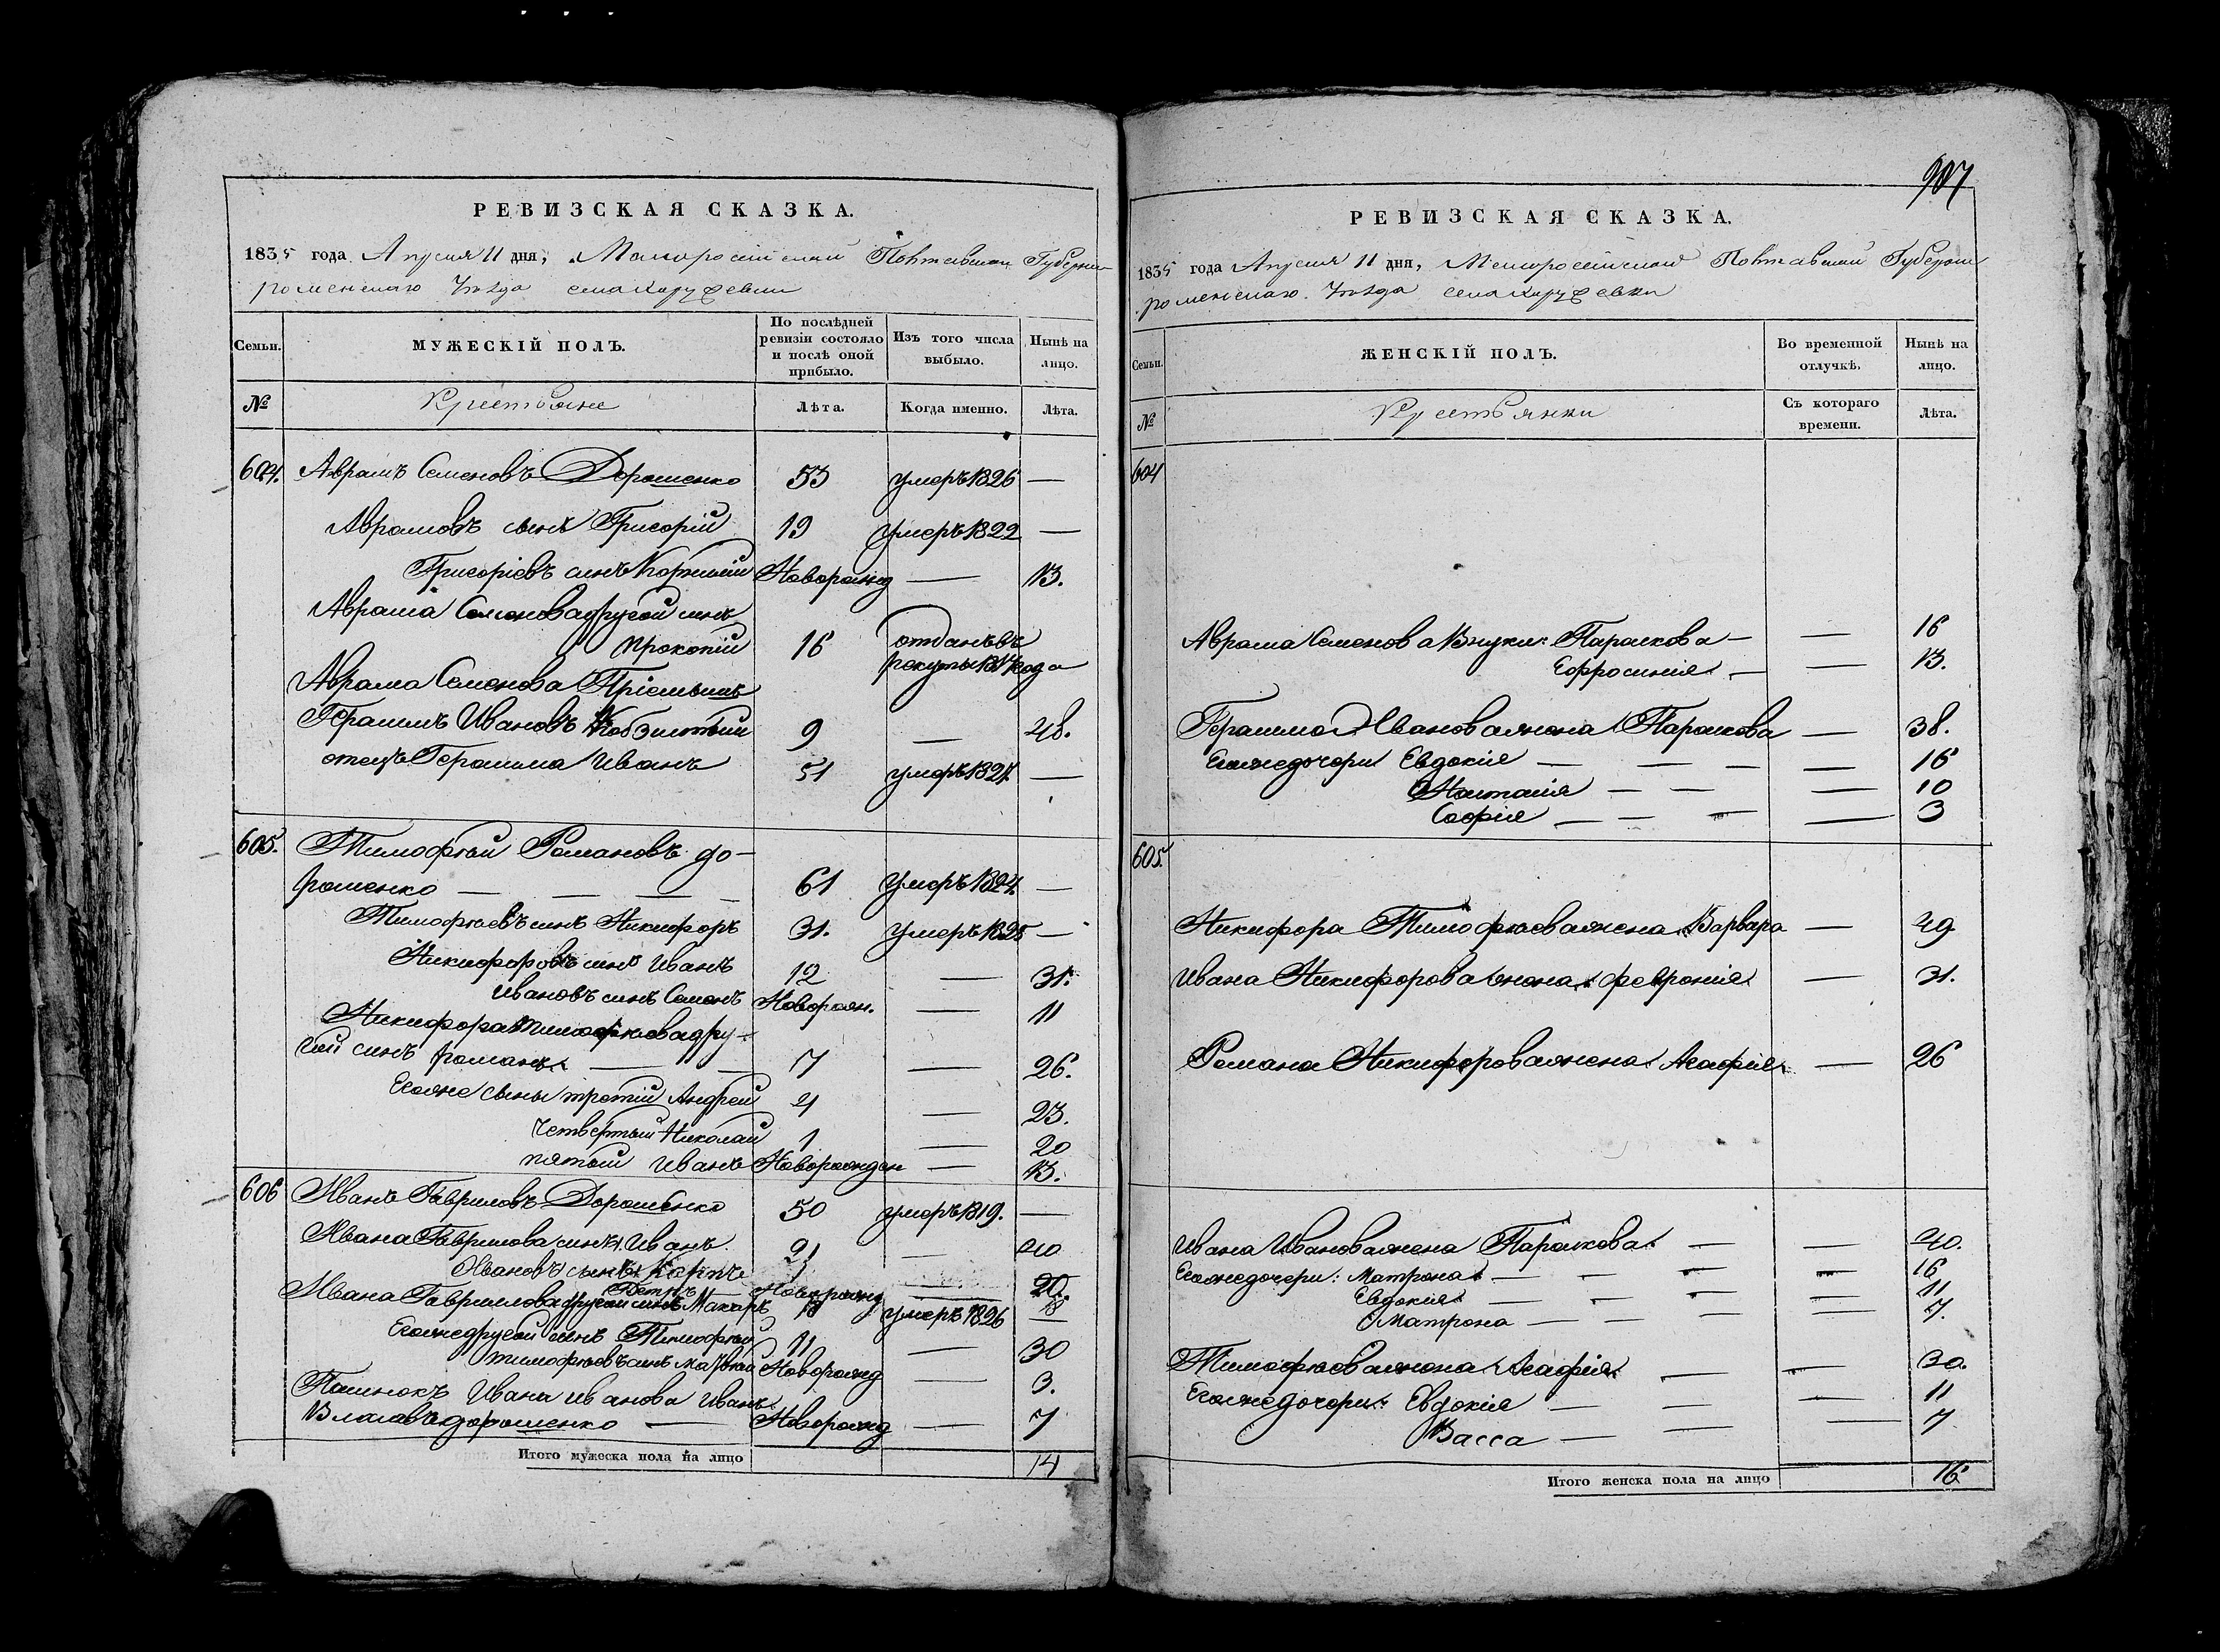 РЕВИЗСКАЯ СКАЗКА.
1835 года Апреля 11 дня, Малоросейской Полтавской Губернии
роменскаго Уѣзда села
Семьи.
МУЖЕСКІЙ ПОЛЪ.
По послѣдней ревизіи состояло и послѣ оной прибыло.
Изъ того числа выбыло.
Нынѣ на лицо.
№
Крестьяне
Лѣта.
Когда именно.
Лѣта.
604. Аврамъ Семеновъ Дорошенко 53 умеръ 1826 —
Аврамовъ сынъ Григорій 19 умеръ 1822 —
Григоріевъ синъ Новорожд — 13.
Аврама Семенова другой синъ
Прокопій 16 отданъ въ
рекуты года
Аврама Семенова Пріемышъ
Герасимъ Ивановъ 9 — 28.
отецъ Герасима Иванъ 51 умеръ —
605. Тимофѣй Романовъ до-
рошенко — — — — 61 умеръ 1824. —
Тимофѣевъ синъ Никифоръ 31. умеръ 1825 —
Никифоровъ синъ Иванъ 12 — 31.
Ивановъ синъ Семенъ Новорожн. — 11
Никифора Тимофѣева дру-
гой синъ романъ — — 7 — 26.
Егоже сыны третій Андрей 4 — 23.
четвертый Николай 1 — 20
пятый Иванъ Новорожден — 13.
606 Иванъ Гавриловъ Дорошенко 50 умеръ 1819. —
Ивана Гаврилова синъ Иванъ 21 — 40
Ивановъ сынъ Карпъ 20.
Петръ Новорожд — 18
Ивана Гаврилова другой синъ Макаръ 18 умеръ 1826 —
Егоже другой синъ Тимофѣй 11 — 30
тимофѣевъ синъ Матвѣй Новорожд — 3.
Ивана Иванова Иванъ
дорошенко — Новорожд — 7
Итого мужеска пола на лицо 14
907
РЕВИЗСКАЯ СКАЗКА.
1835 года Апреля 11 дня, Малоросейской Полтавской Губернии
роменскаго Уѣзда села
Семьи.
ЖЕНСКІЙ ПОЛЪ.
Во временной отлучкѣ.
Нынѣ на лицо.
№
Крестьянки
Съ котораго времени.
Лѣта.
604
Аврама Семенова Внуки: Параскова — — 16
Ефросинія — — 13.
Герасима Иванова жена Параскова — 38.
Егоже дочери Евдокія — — — — 16
Настасія — — — 10
Софія — — — — 3
605.
Никифора Тимофѣева жена Варвара — 49
Ивана Никифорова жена Февронія — 31.
Романа Никифорова жена Агафія — 26
Ивана Иванова жена Параскова — — 40.
Егоже дочери: Матрона — — — — 16
Евдокія — — — — 11
Матрона — — — — 7.
Тимофѣева жена Агафія — — 30.
Егоже дочери: Евдокія — — — 11
Васса — — — 7
Итого женска пола на лицо 16